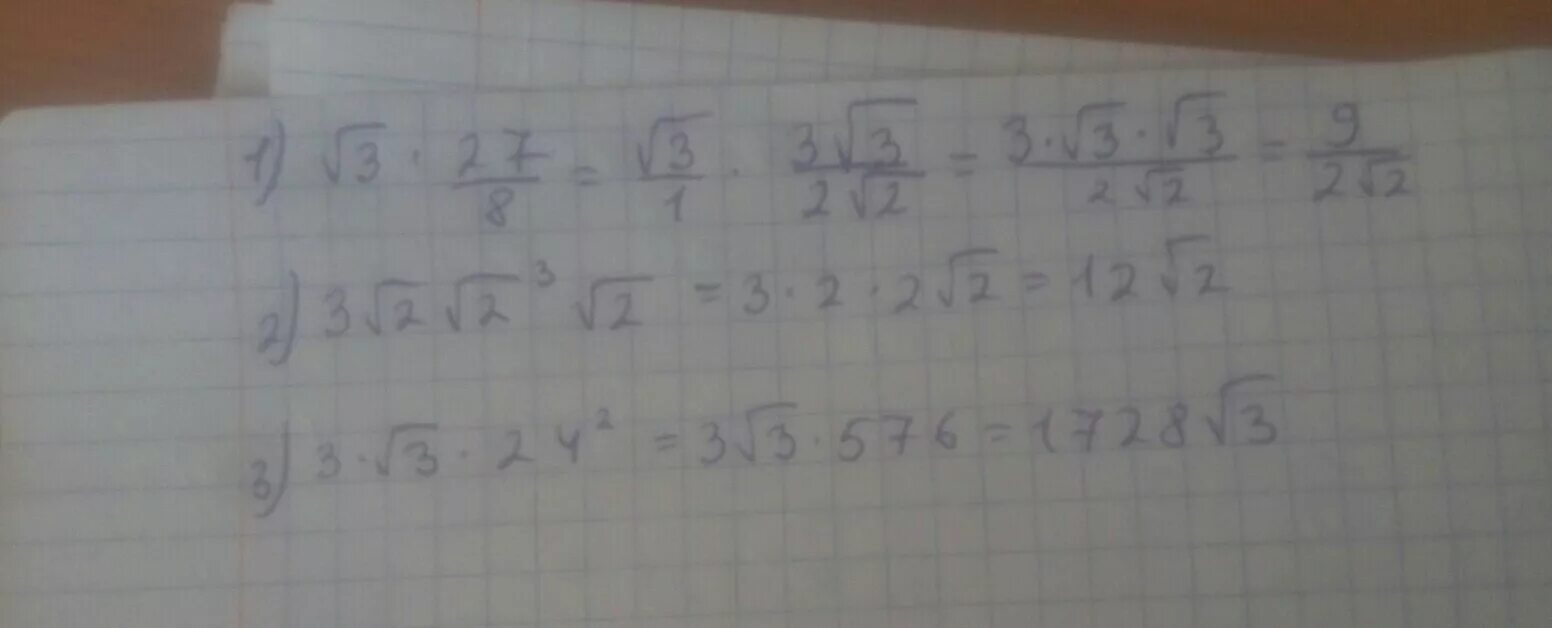 1) √3 · 27/8 = √3/1 · 3√3/2√2 = 3·√3·√3/2√2 = 9/2√2
2) 3√2 √2³ √2 = 3·2·2√2 = 12√2
3) 3·√3·24² = 3√3·576 = 1728√3